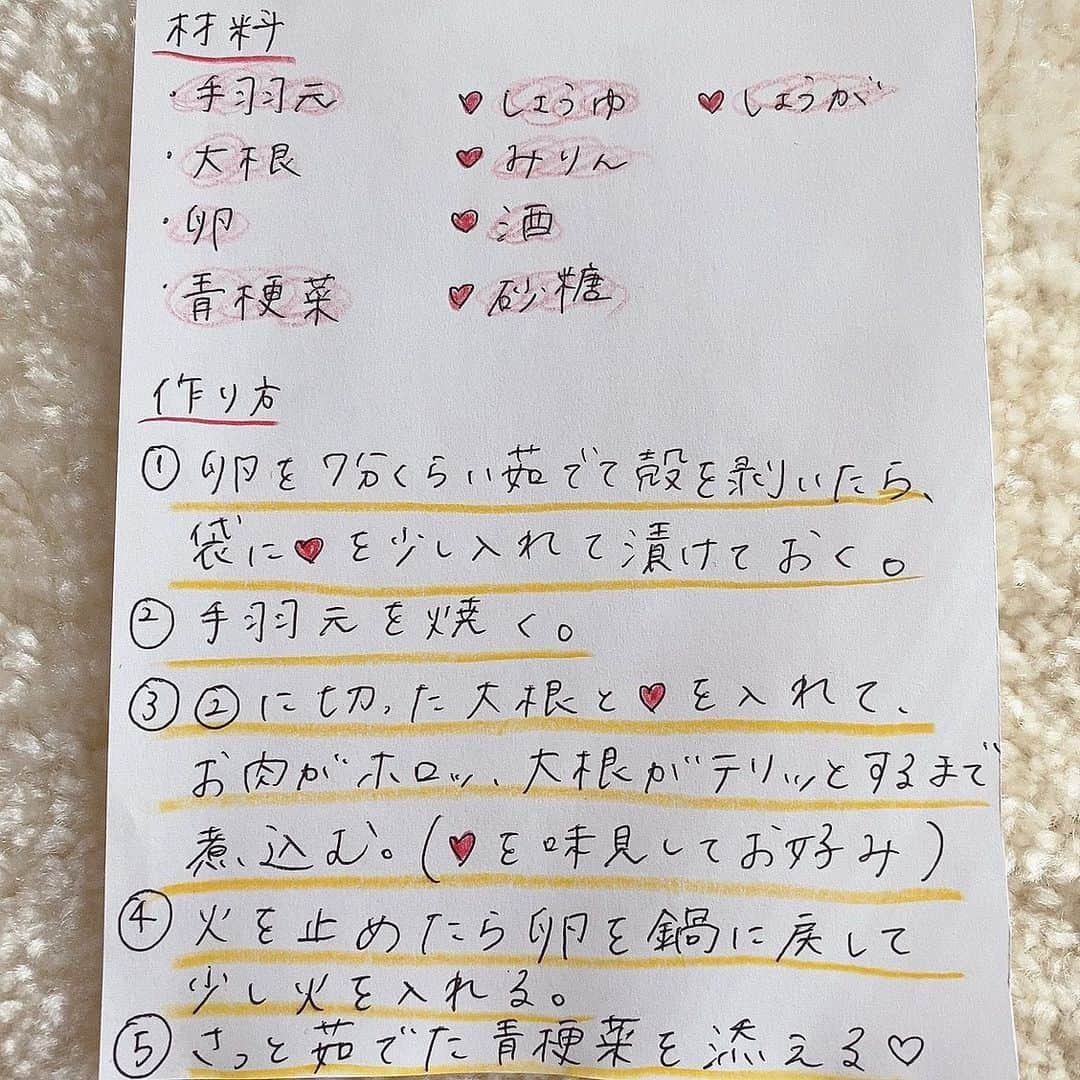 材料
・手羽元 ♥しょうゆ ♥しょうが
・大根 ♥みりん
・卵 ♥酒
・青梗菜 ♥砂糖
作り方
① 卵を7分くらい茹でて殻を剥いたら、
袋に♥を少し入れて漬けておく。
② 手羽元を焼く。
③ ②に切った大根と♥を入れて、
お肉がホロッ、大根がテリッとするまで
煮込む。(♥を味見してお好み)
④ 火を止めたら卵を鍋に戻して
少し火を入れる。
⑤ さっと茹でた青梗菜を添える♡